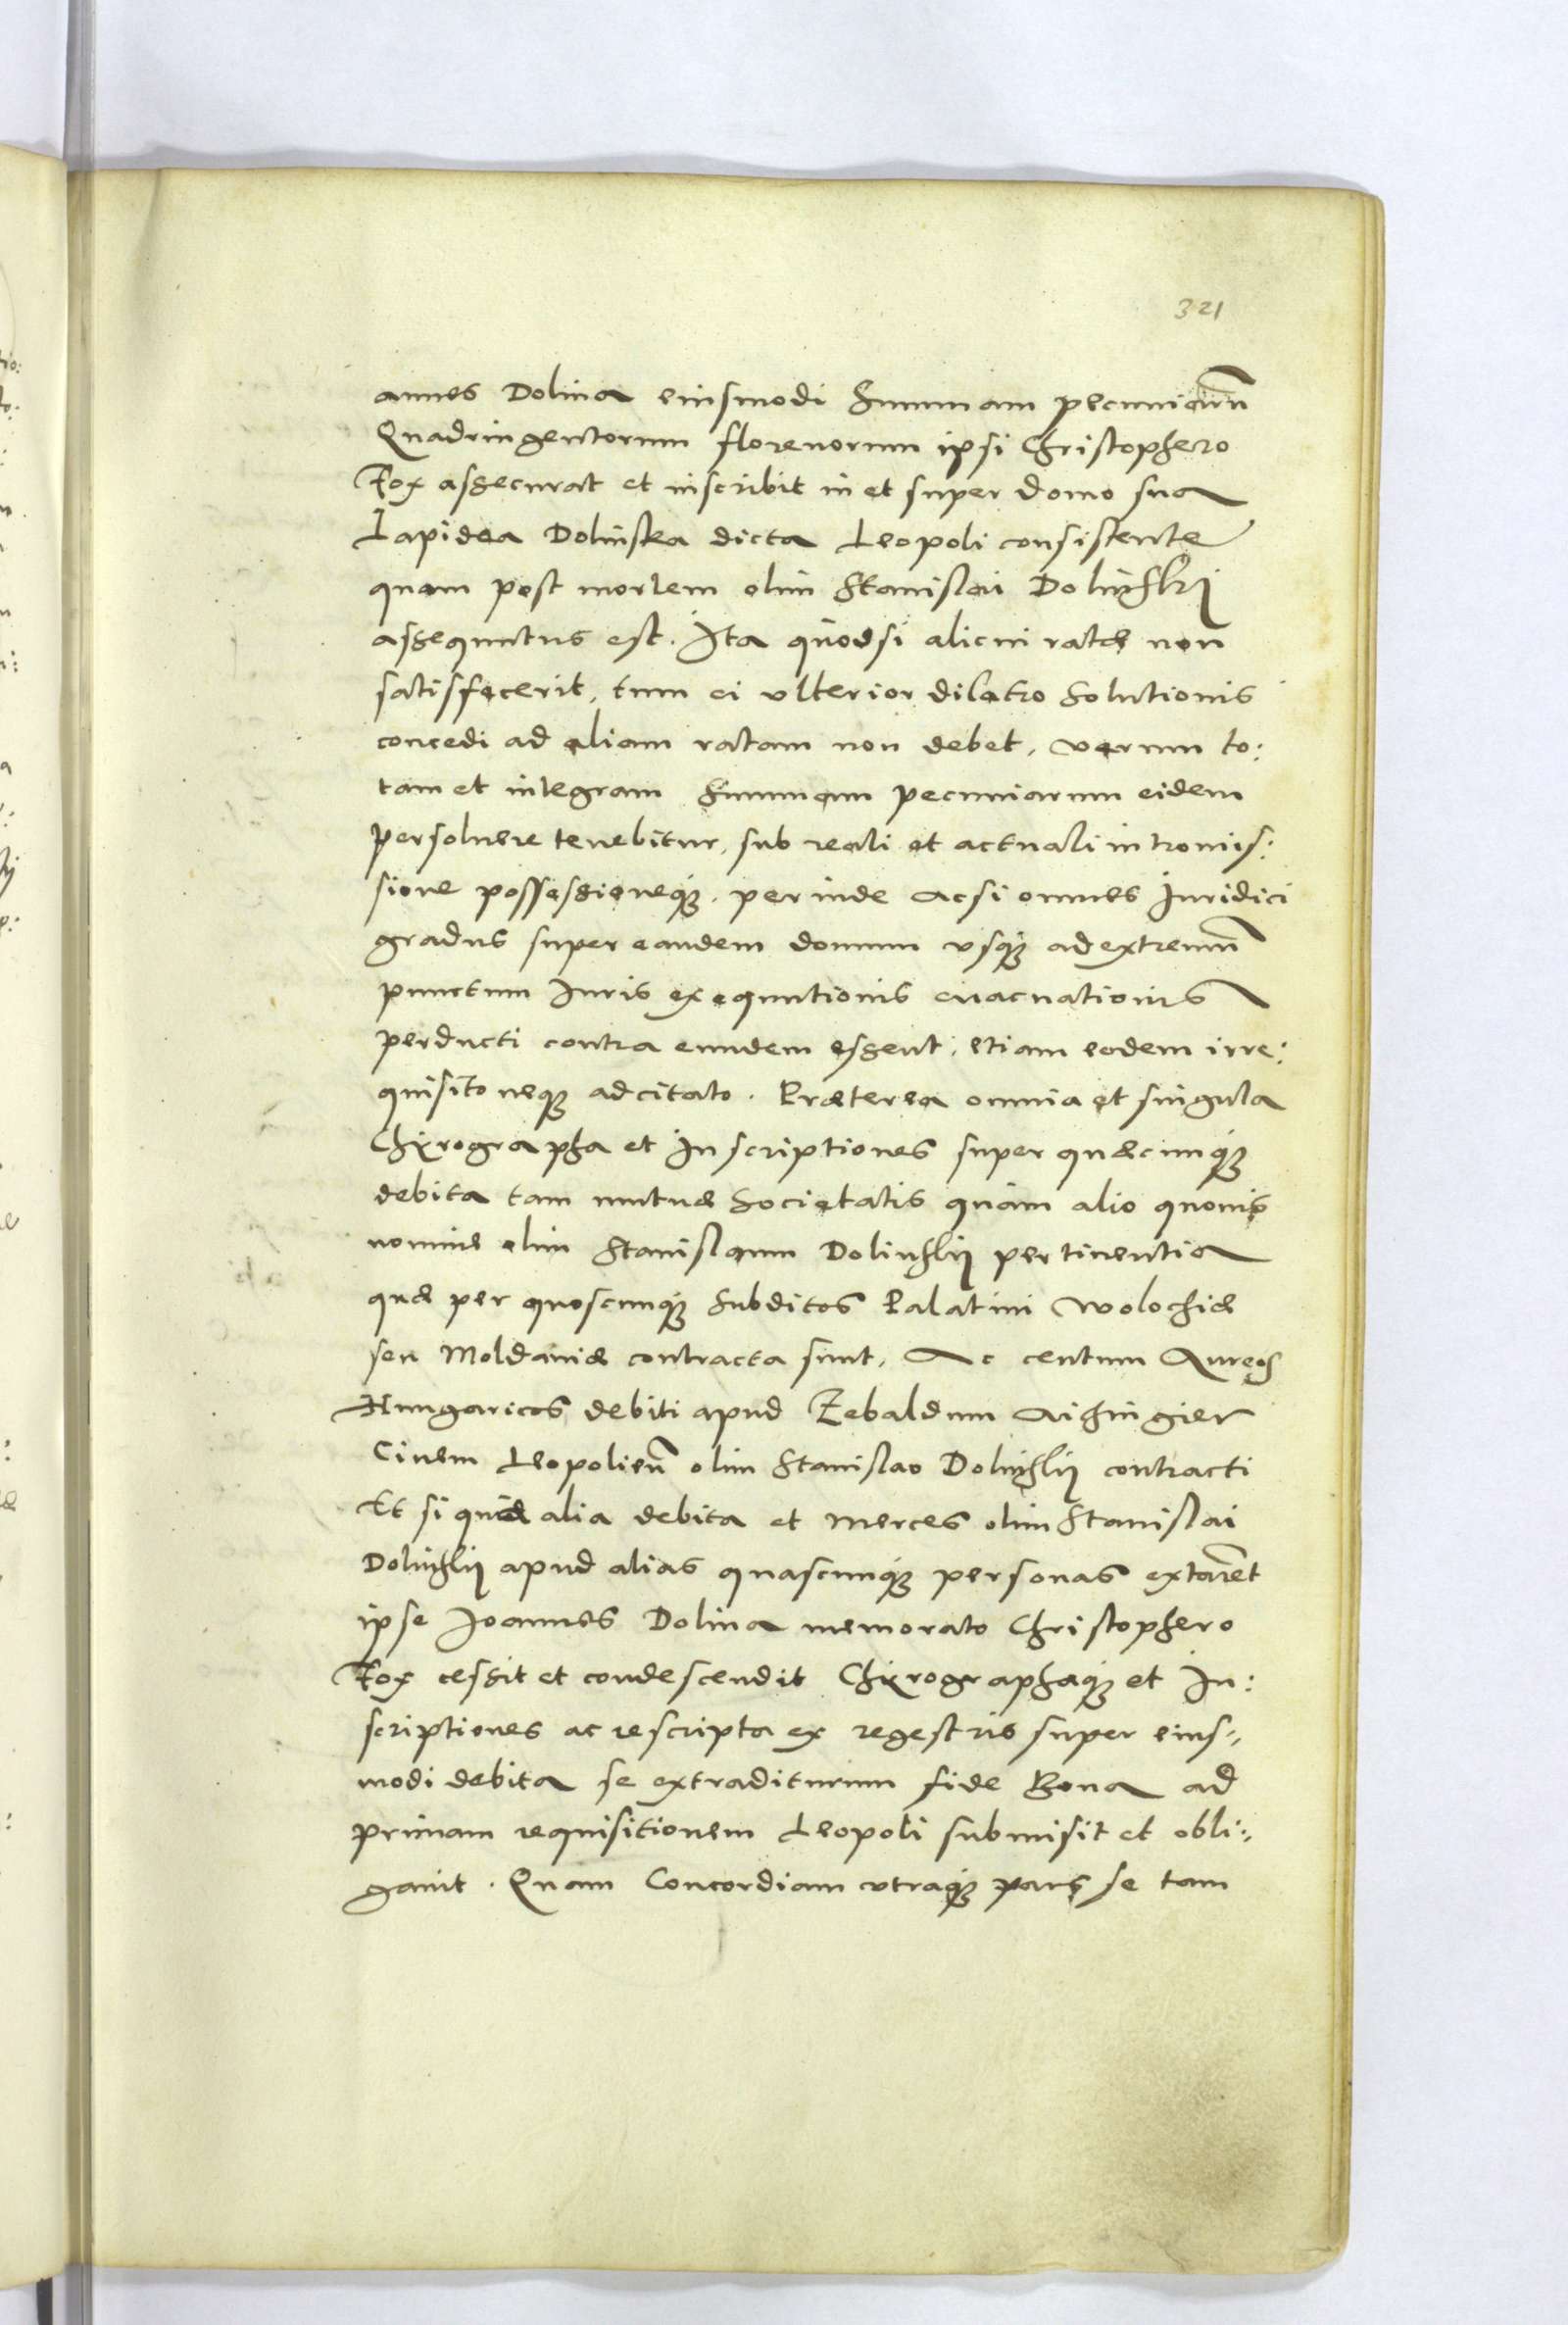 321
annes Dolina eiusmodi Summam pecuniarum
Quadringentorum florenorum ipsi Christophero
Fox assecurat et inscribit in et super domo sua
Lapidea Dolinska dicta Leopoli consistente
quam post mortem olim Stanislai Dolinskij
assequutus est. Ita quodsi alicui ratæ non
satisfecerit, tum ei vlterior dilatio Solutionis
concedi ad aliam ratam non debet, verum to:
tam et integram Summam pecuniarum eidem
persoluere tenebitur, sub reali et actuali intromis:
sione possessioneq́ue, perinde acsi omnes Iuridici
gradus super eandem domum vsq́ue ad extremum
punctum Iuris exequutionis euacuationis
perducti contra eundem essent, etiam eodem irre:
quisito neq́ue adcitato. Præterea omnia et singula
Chirographa et Inscriptiones super quæcunq́ue
debita tam mutuæ Societatis quàm alio quouis
nomine olim Stanislaum Dolinskij pertinentia
quæ per quoscunq́ue Subditos Palatini Wolochiæ
seu Moldauiæ contracta sunt, Ac centum Aureos
Hungaricos debiti apud Zebaldum Aichingier
Ciuem Leopolien̄ olim Stanislao Dolinskij contracti
Et si quæ alia debita et merces olim Stanislai
Dolinskij apud alias quascunq́ue personas extarent
ipse Joannes Dolina memorato Christophero
Fox cessit et condescendit Chirographaq́ue et In:
scriptiones ac rescripta ex regestris super eius„
modi debita se extraditurum fide Bona ad
primam requisitionem Leopoli submisit et obli„
gauit. Quam Concordiam vtraq́ue pars se tam